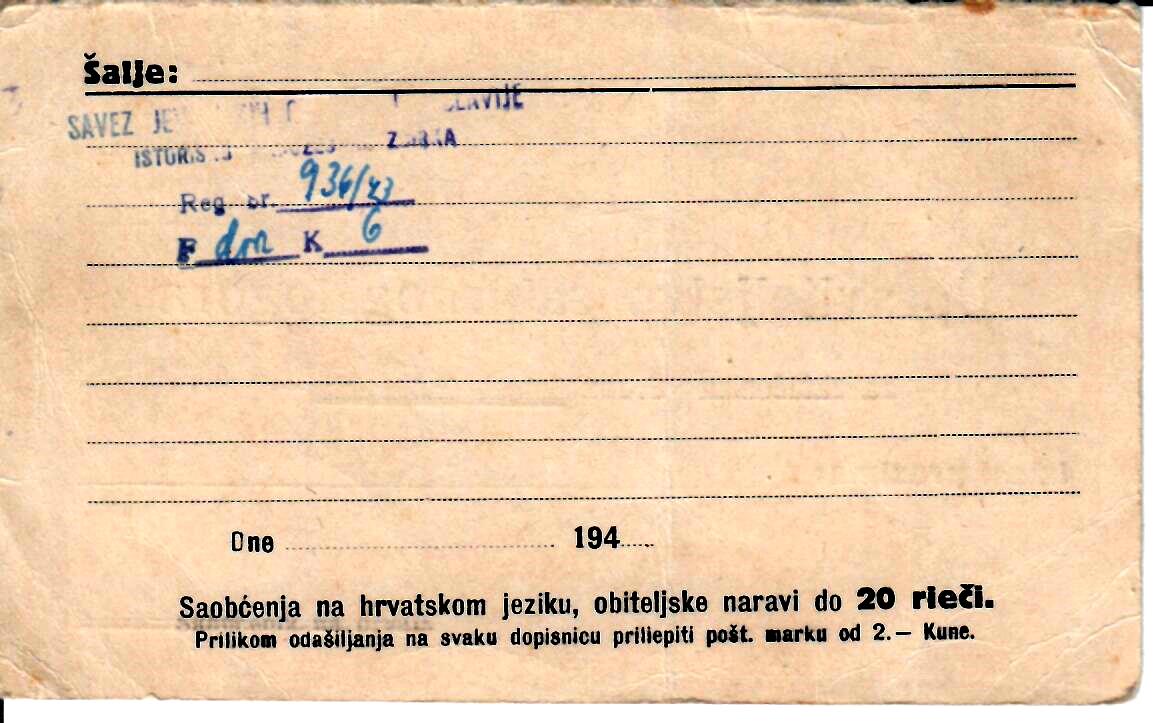 Šalje:
SAVEZ
Reg br. 936/43
F don K 6
Dne 194
Saobćenja na hrvatskom jeziku, obiteljske naravi do 20 rieči.
Prilikom odašiljanja na svaku dopisnicu priliepiti pošt. marku od 2.— Kune.